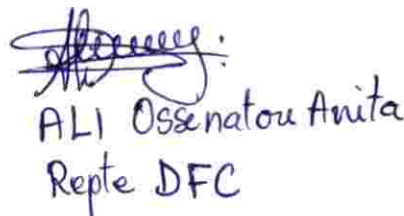 ALI Ossenatou Anita
Repte DFC